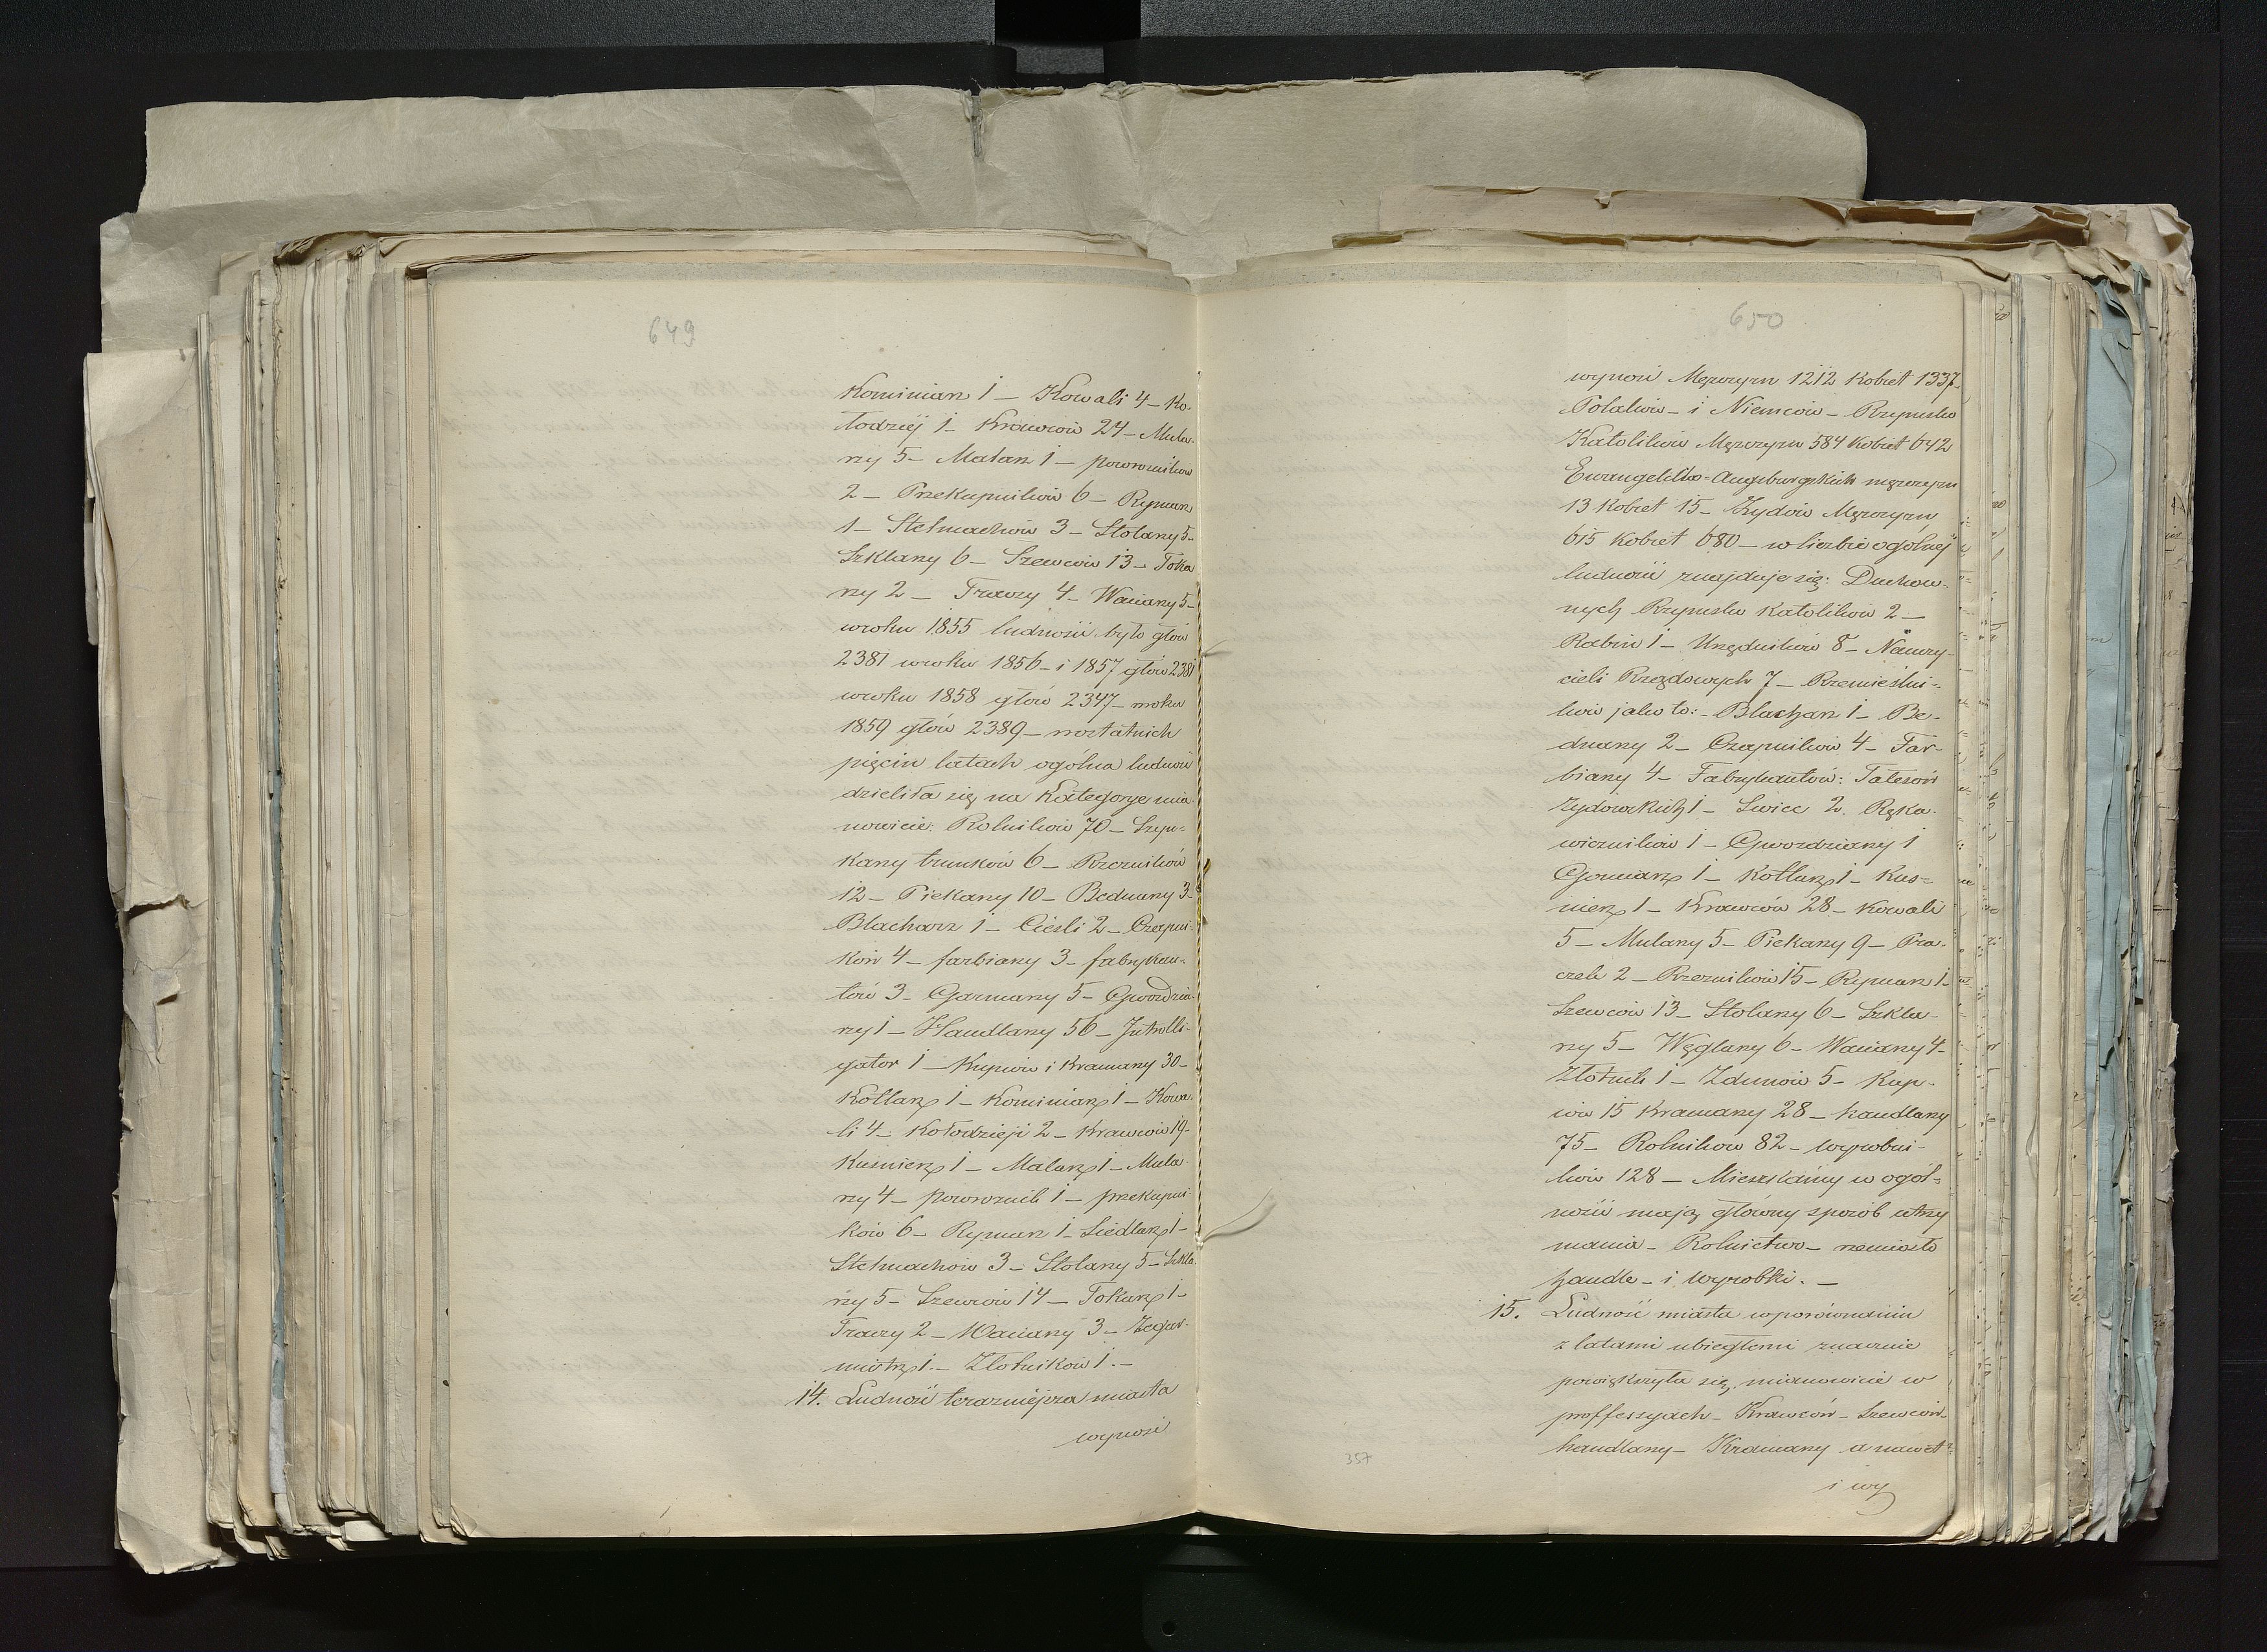 649
Kominiarz 1 – Kowali 4 – Ko-
łodziej 1 – Krawców 24 – Mula-
rzy 5 – Malarz 1 – powroźników
2 – Przekupników 6 – Rymarz
1 – Stelmachów 3 – Stolarzy 5 –
Szklarzy 6 – Szewców 13 – Toka
rzy 2 – Traczy 4 – Waciarzy 5 –
wroku 1855 ludności było głów
2381 wroku 1856 – i 1857 głów 2381
wroku 1858 głów 2347 – wroku
1859 głów 2389 – wostatnich
pięciu latach ogólna ludność
dzieliła się na Kategorye mia-
nowicie: Rolników 70 – Szyn-
karzy trunków 6 – Rzezników
12 – Piekarzy 10 – Bednarzy 3 –
Blacharz 1 – Cieśli 2 – Czapni-
ków 4 – farbiarzy 3 – fabrykan-
tów 3 – Garnarzy 5 – Gwoździa-
rzy 1 – Handlarzy 56 – Jntrolli-
gator 1 – Kupców i Kramarzy 30 –
Kotlarz 1 – Kominiarz 1 – Kowa-
li 4 – Kołodzieji 2 – Krawców 19 –
Kusnierz 1 – Malarz 1 – Mula-
rzy 4 – powroznik 1 – przekupni-
ków 6 – Rymarz 1 – Siedlarz 1 –
Stelmachów 3 – Stolarzy 5 – Szkla-
rzy 5 – Szewców 14 – Tokarz 1 –
Traczy 2 – Waciarzy 3 – Zegar-
mistrz 1. – Złotników 1. –
14. Ludność terazniejsza miasta
wynosi
650
wynosi Męzczyzn 1212 Kobiet 1337 –
Polaków – i Niemców – Rzymsko
Katolików Męzczyzn 584 Kobiet 642
Ewangelicko = Augsburgskich męzczyzn
13 Kobiet 15 – Żydów Męzczyzn
615 Kobiet 680 – w liczbie ogólnej
ludności znajduje się: Duchow-
nych Rzymsko Katolików 2 –
Rabin 1 – Urzędników 8 – Nauczy-
cieli Rządowych 7 – Rzemieślni-
ków jako to: – Blacharz 1 – Be-
dnarzy 2 – Czapników 4 – Far-
biarzy 4 – Fabrykantów: Talesów
żydowskich 1 – Swiec 2. Ręka-
wiczników 1 – Gwozdziarzy 1
Garnarz 1 – Kotlarz 1 – Kus=
nierz 1 – Krawców 28 – Kowali
5 – Mularzy 5 – Piekarzy 9 – Pra-
czek 2 – Rzezników 15 – Rymarz 1 –
Szewców 13 – Stolarzy 6 – Szkla-
rzy 5 – Węglarzy 6 – Waciarzy 4 –
Złotnik 1 – Zdunów 5 – Kup-
ców 15 Kramarzy 28 – handlarzy
75 – Rolników 82 – wyrobni-
ków 128 – Mieszkańcy w ogól=
ności mają główny sposób utrzy
mania – Rolnictwo – rzemiosło
handle – i wyrobki. –
15. Ludność miasta w porównaniu
z latami ubiegłemi znacznie
powiększyła się, mianowicie w
proffessyach – Krawców – Szewców –
handlarzy – Kramarzy a nawet
i wy
357